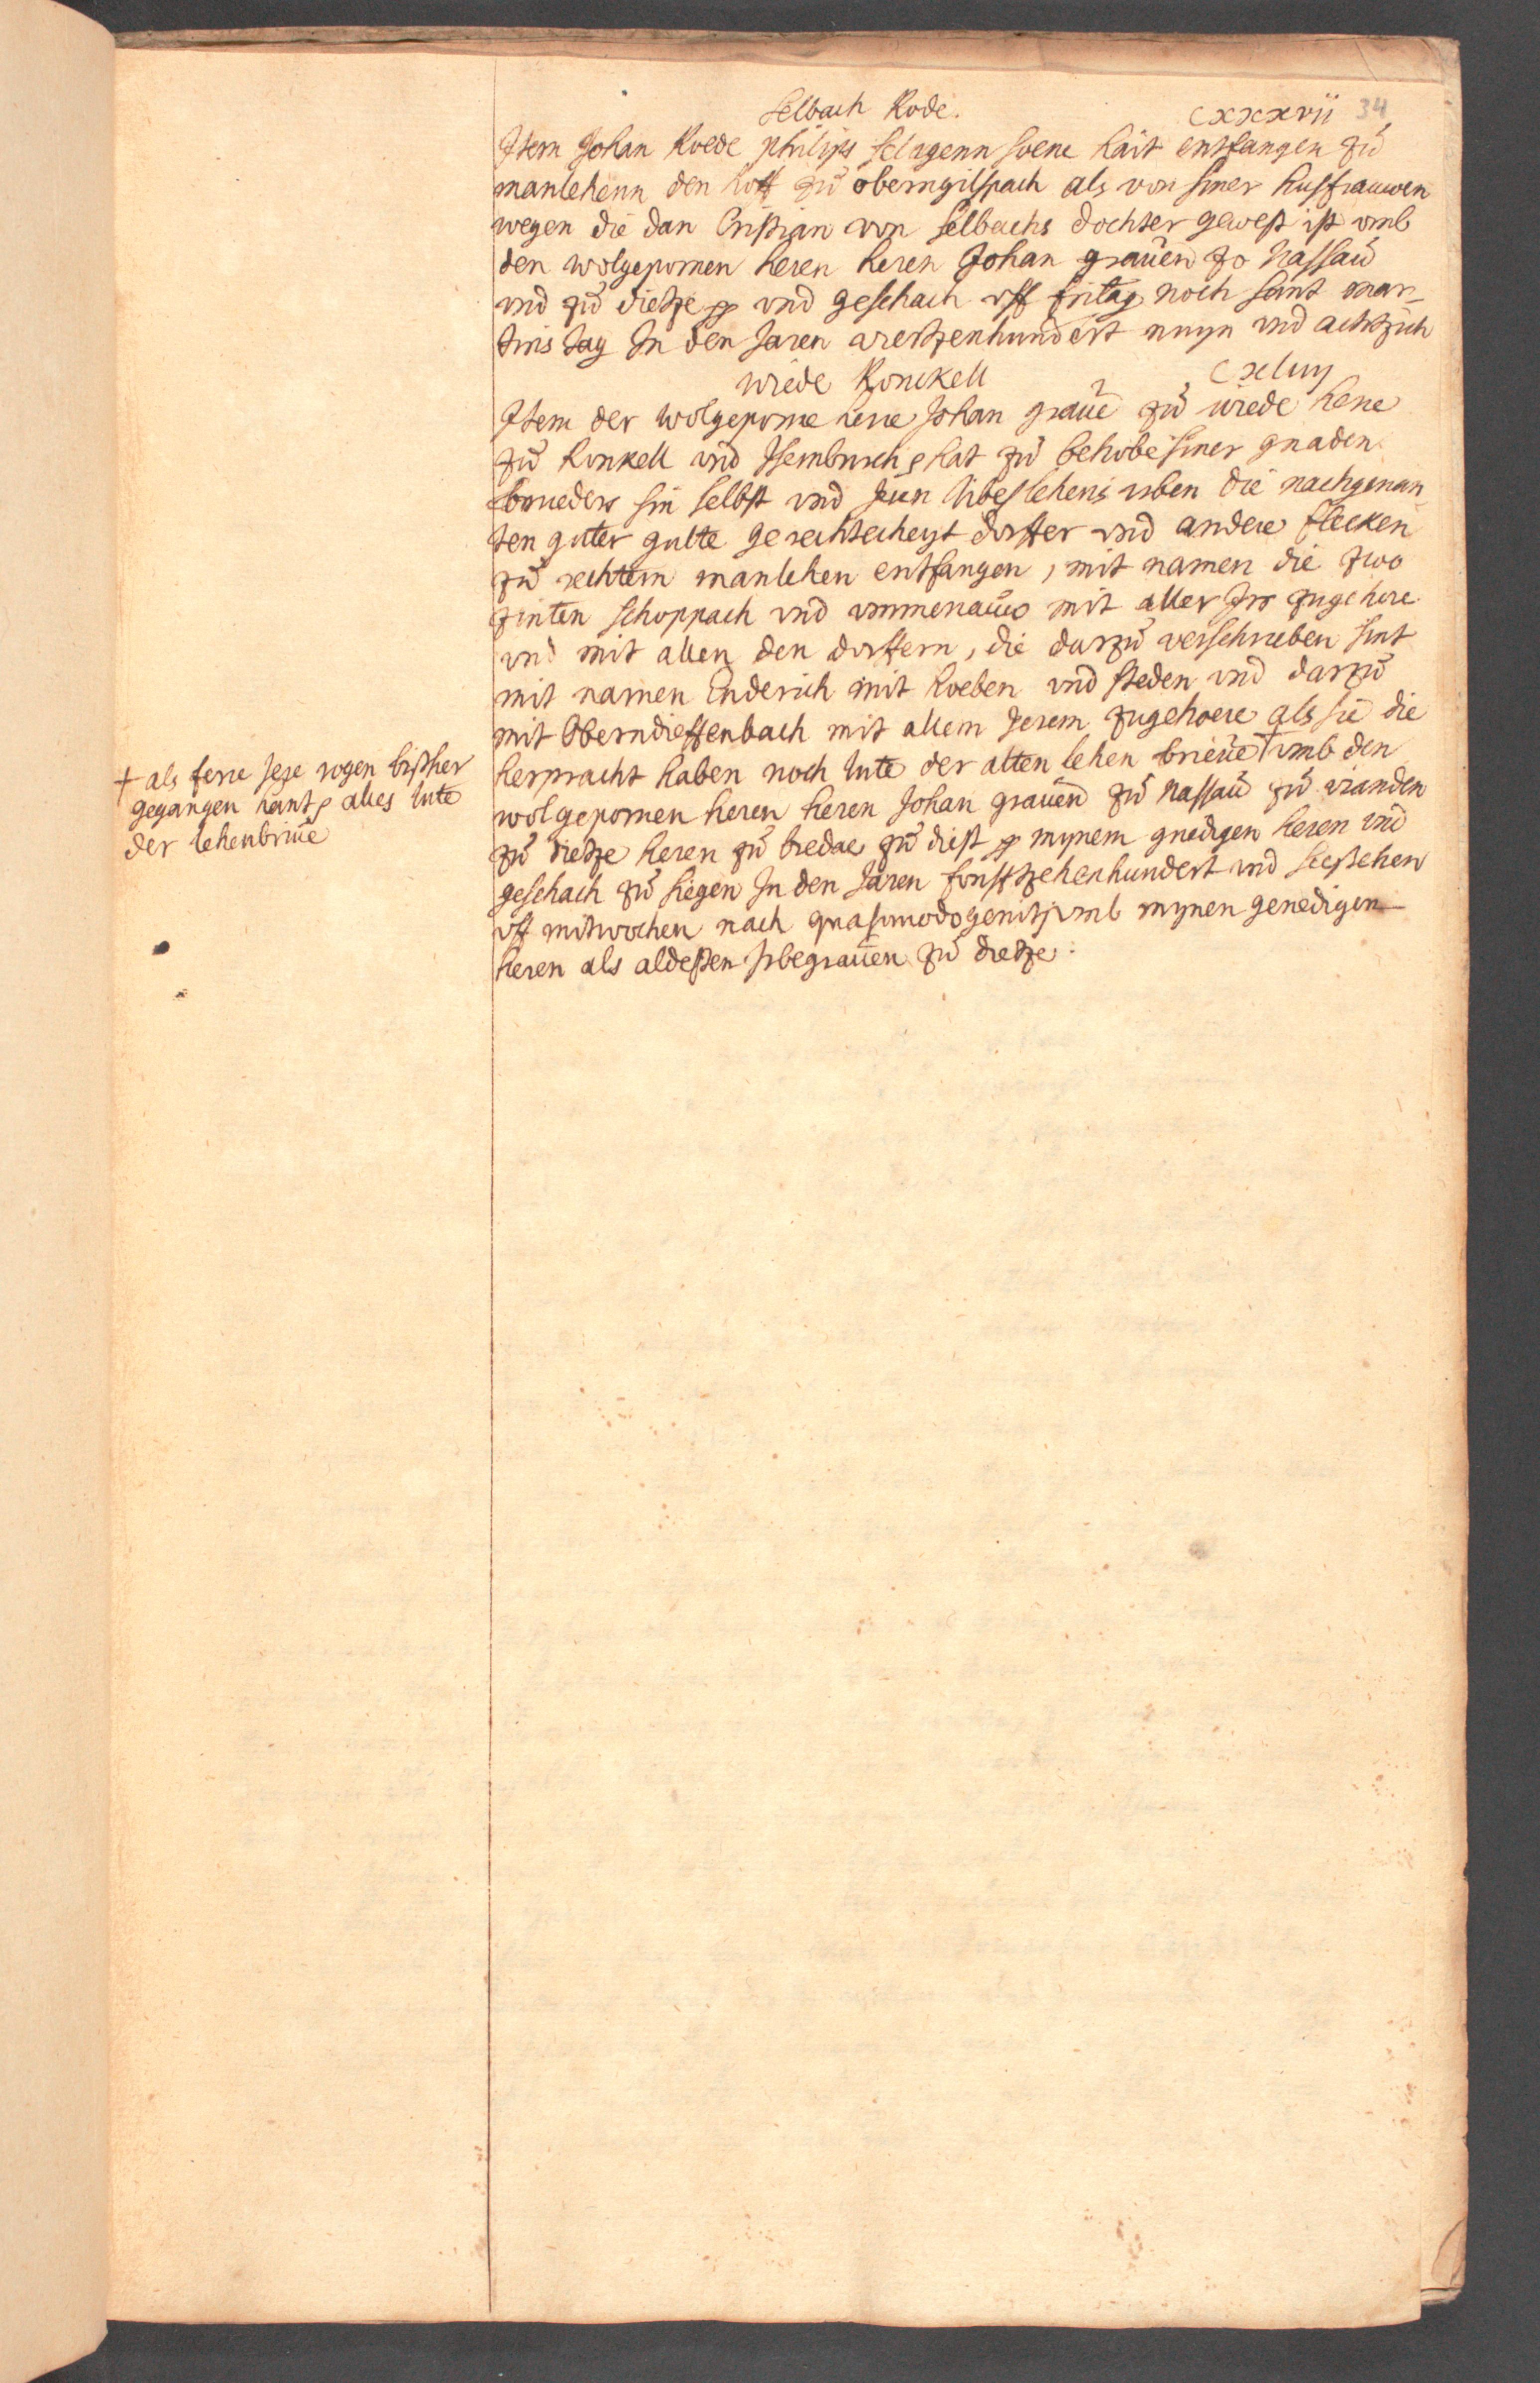 Selbach Rode. cxxxvii 34
Item Johan Roede philips seligenn soene hait entfangen zů
manlehenn den hoff zů oberngilspach als von siner husfrauwen
wegen die dan Cristian von selbachs dochter gewest ist vmb
den wolgepornen heren heren Johan grauen zo Nassaů
vnd zů dietze vnd geschach vff fritag noch sant mar-
tins tag In den Jaren viertzenhundert nuyn vnd achtzich
wiede Ronckell
Item der wolgeporne here Johan graue zů wiede here
zů Ronkell vnd Isemburch hat zů behobe siner gnaden
brueders sin selbst vnd libeslehens erben die nachgenan
ten guter gulte gerechtecheyt dorffer vnd andere flecken
zů rechtem manlehen entfangen, mit namen die zwo
zinten schoppach vnd vmmenauw mit aller Irs zugehore
vnd mit allen den dorffern, die darzů verschrieben sint
mit namen Enderich mit hoeben vnd steden vnd darzů
mit Oberndieffenbach mit allem Jerem zugehoere als sie die
herpracht haben noch lute der alten lehen brieue + vmb den
wolgepornen heren heren Johan grauen zů Nassaů zů vianden
zů dietze heren zů bredae zů diest mynem gnedigen heren vnd
geschach zů siegen In den Jaren funfftzehenhundert vnd seeßehen
vff mitwochen nach quasimodogeniti vmb mynen genedigen
heren als aldesten grauen zů dietze.
+ als ferre bißher
gegangen hant alles lute
der lehenbriue